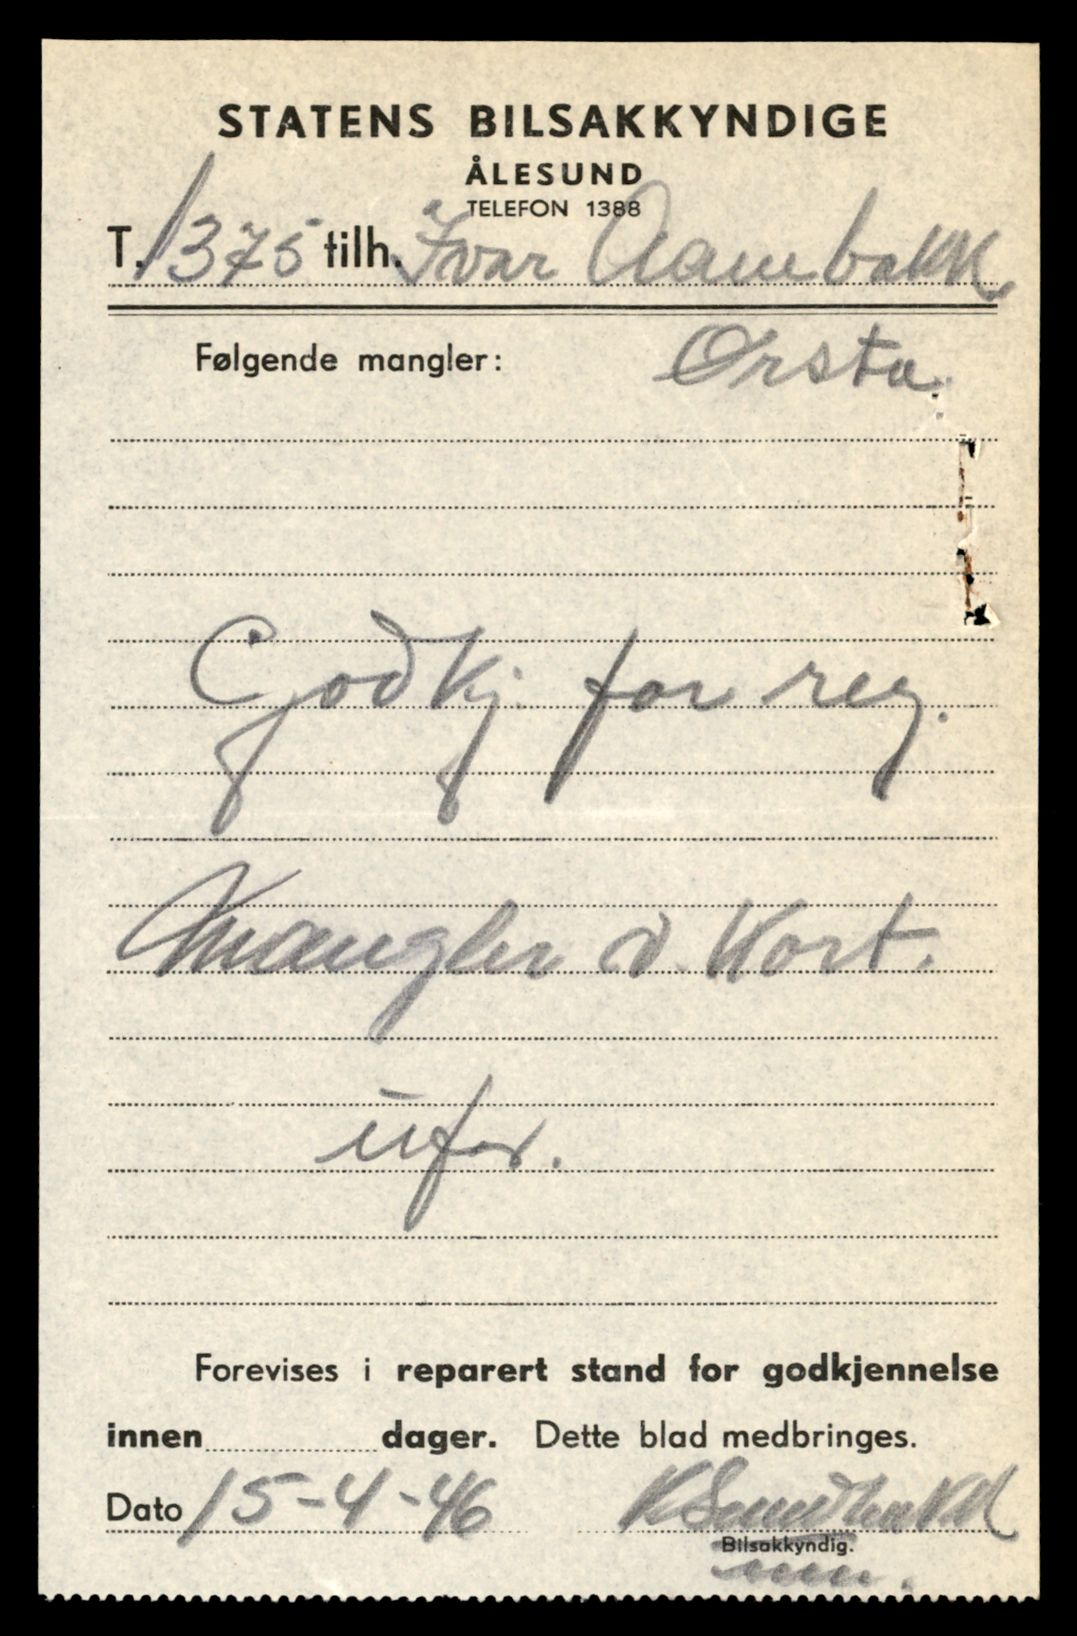 STATENS BILSAKKYNDIGE
ÅLESUND
TELEFON 1388
T. 1375 tilh. Ivar Aambakk
Ørsta.
Følgende mangler:
Godkj. for reg.
Mangler v. Kort.
Dato 15-4-46
Forevises i reparert stand for godkjennelse
innen dager. Dette blad medbringes.
Bilsakkyndig.